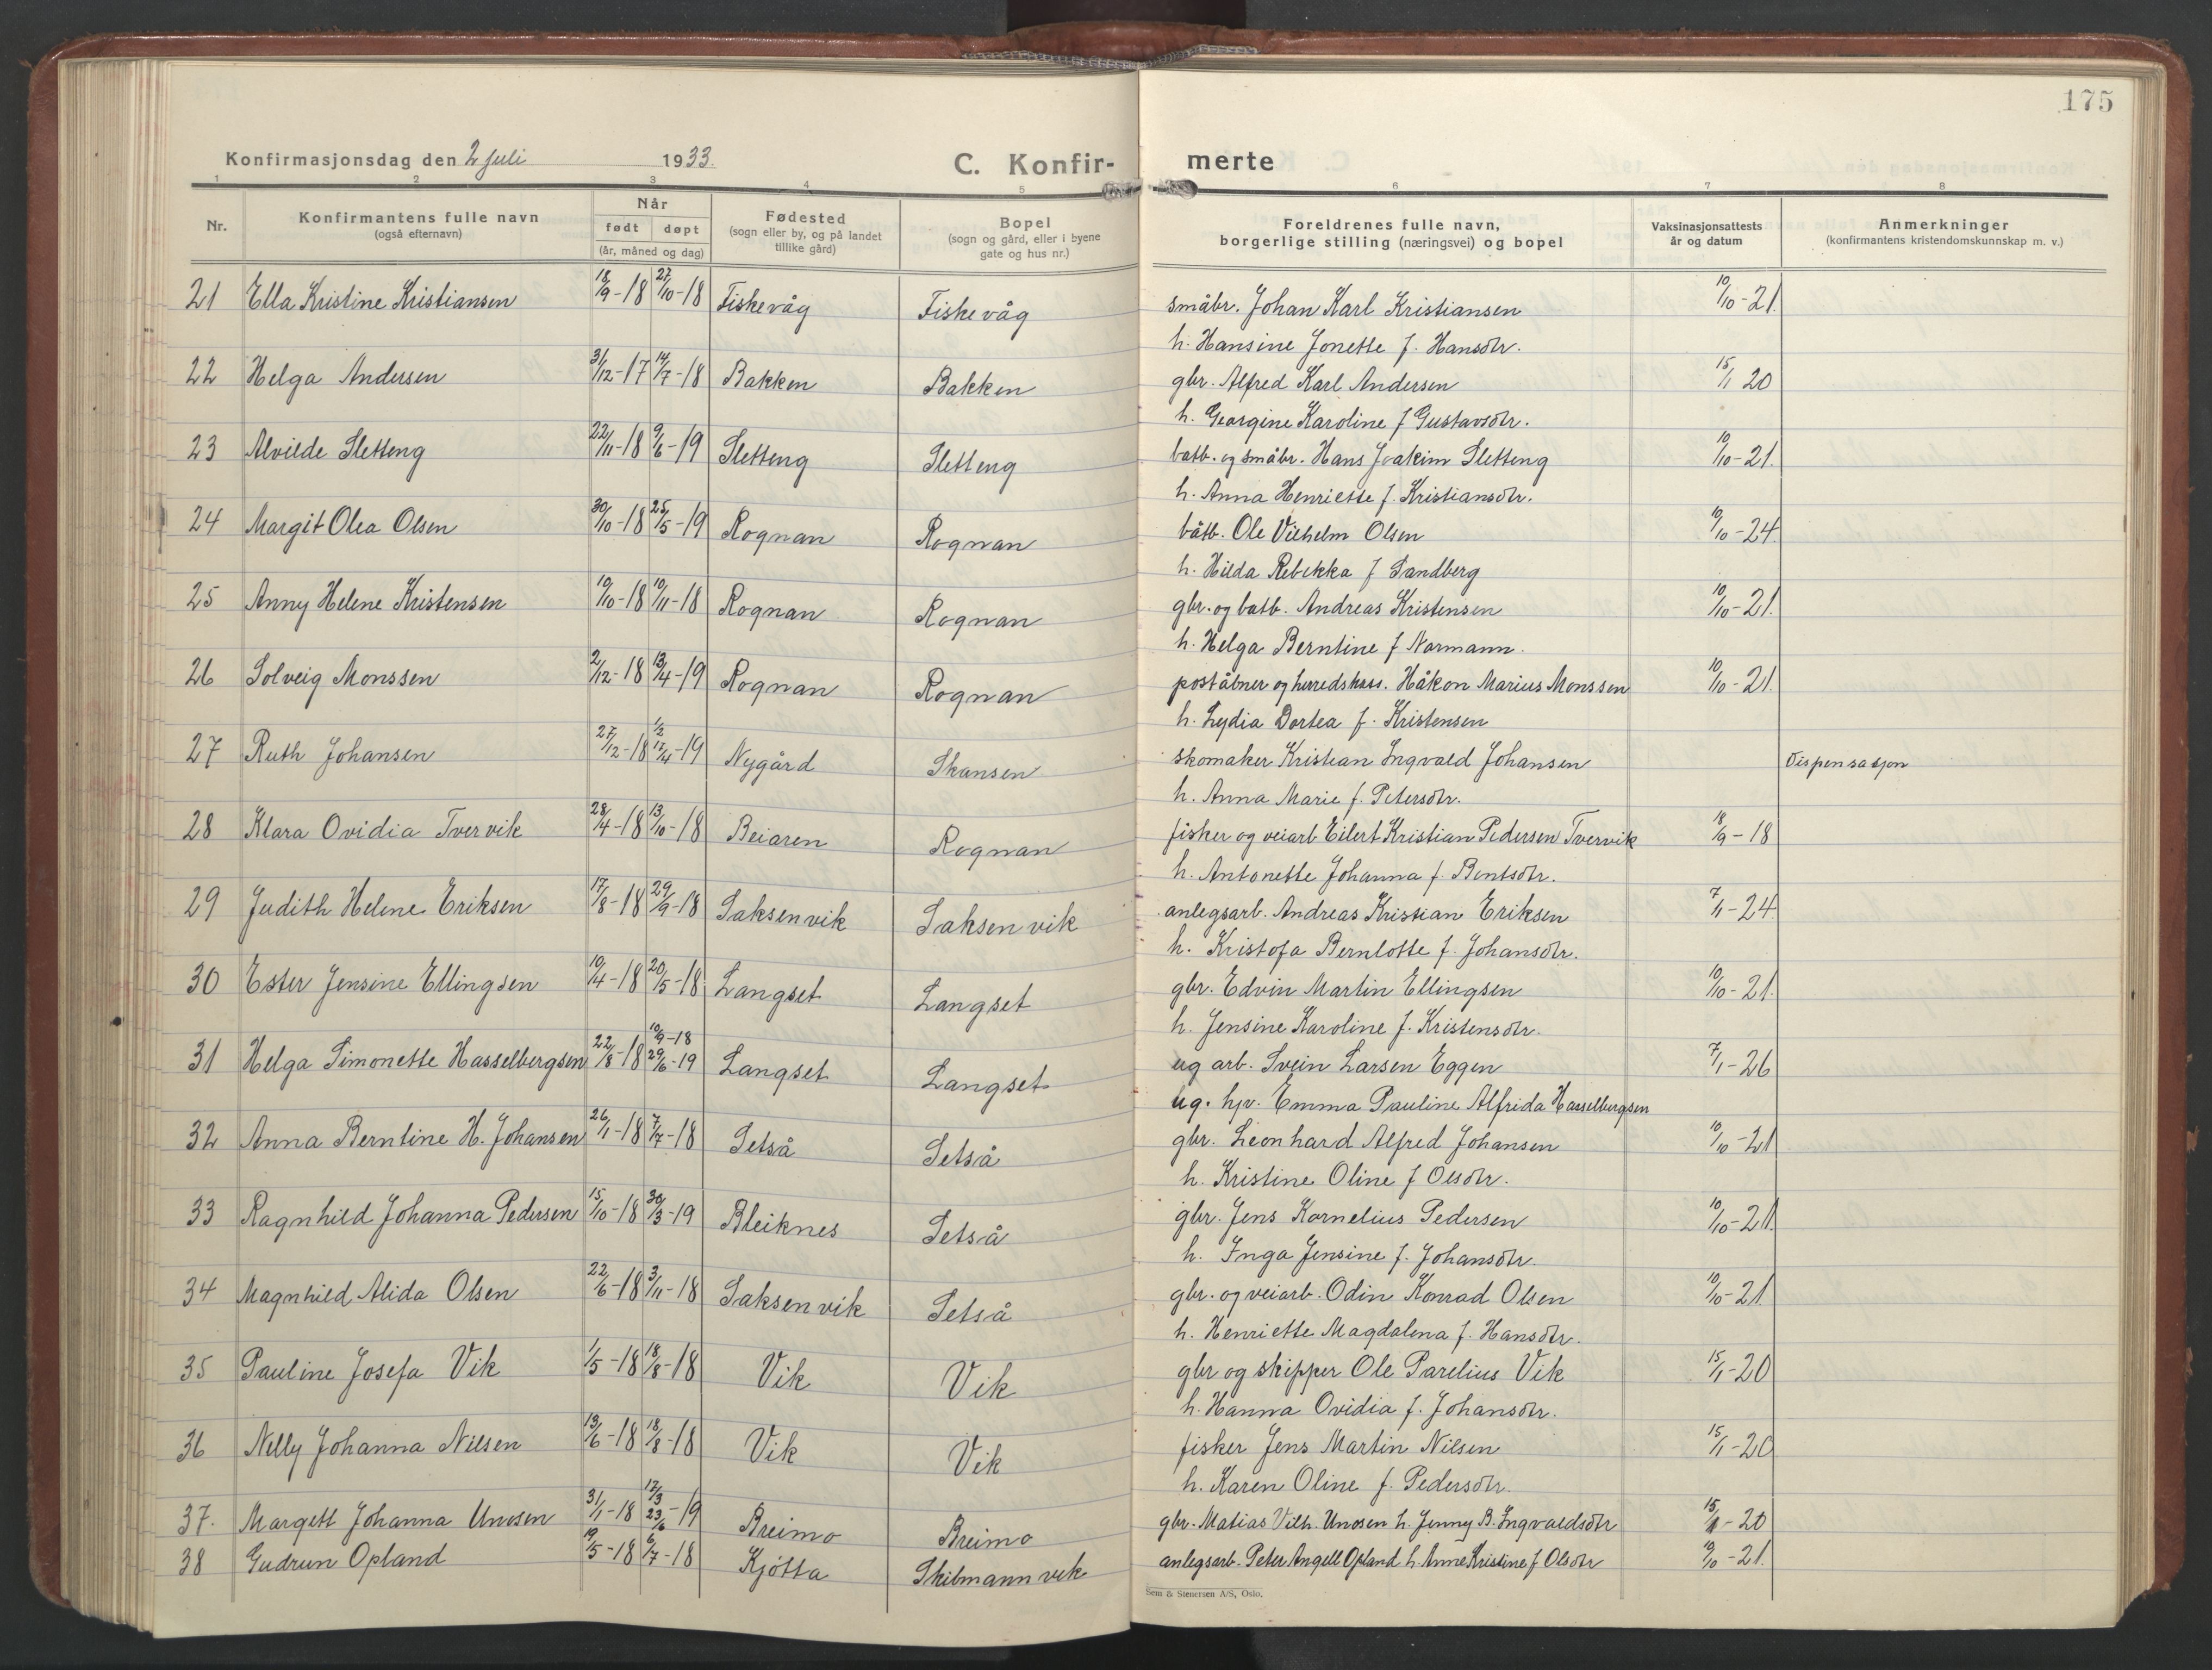 175
Konfirmasjonsdag den 2 juli 1933.
C. Konfirmerte
1 2 3 4 5 6 7 8
Nr. Konfirmantens fulle navn (også efternavn) Når født døpt (år, måned og dag) Fødested (sogn eller by, og på landet tillike gård) Bopel (sogn og gård, eller i byene gate og hus nr.) Foreldrenes fulle navn, borgerlige stilling (næringsvei) og bopel Vaksinasjonsattests år og datum Anmerkninger (konfirmantens kristendomskunnskap m. v.)
21 Ella Kristine Kristiansen 18/9-18 27/10-18 Fiskevåg Fiskevåg småbr. Johan Karl Kristiansen 10/10-21.
h. Hansine Jonette f. Hansdtr.
22 Helga Andersen 31/12-17 14/7-18 Bakken Bakken gbr. Alfred Karl Andersen 15/1 20
h. Georgine Karoline f Gustavsdtr.
23 Alvilde Sletteng 22/11-18 9/6-19 Sletteng Sletteng batb. og småbr. Hans Joakim Sletteng 10/10-21.
h. Anna Henriette f. Kristiansdtr.
24 Margit Olea Olsen 30/10-18 25/5-19 Rognan Rognan båtb. Ole Vilhelm Olsen 10/10-24
h. Hilda Rebekka f Sandberg
25 Anny Helene Kristensen 19/10-18 10/11-18 Rognan Rognan gbr. og batb. Andreas Kristensen 10/10-21.
h. Helga Berntine f Normann.
26 Solveig Monssen 2/12-18 13/4-19 Rognan Rognan poståbner og herredskass. Håkon Marius Monssen 10/10-21.
h. Lydia Dortea f. Kristensen
27 Ruth Johansen 27/12-18 1/2 17/4-19 Nygård Skansen skomaker Kristian Ingvald Johansen Dispensasjon
h. Anna Marie f. Petersdtr.
28 Klara Ovidia Tvervik 28/4-18 13/10-18 Beiaren Rognan fisker og veiarb Eilert Kristian Pedersen Tvervik 18/9-18
h. Antonette Johanna f. Bentsdtr.
29 Judith Helene Eriksen 17/8-18 29/9-18 Saksenvik Saksenvik anlegsarb. Andreas Kristian Eriksen 7/1-24
h. Kristofa Bernlotte f. Johansdtr.
30 Ester Jensine Ellingsen 10/4-18 20/5-18 Langset Langset gbr. Edvin Martin Ellingsen 10/10-21.
h. Jensine Karoline f. Kristensdtr.
31 Helga Simonette Hasselbergsen 22/8-18 10/9-18 29/6-19 Langset Langset ug arb. Svein Larsen Eggen 7/1-26
ug. hjv. Emma Pauline Alfrida Hasselbergsen
32 Anna Berntine H. Johansen 26/1-18 7/7-18 Setså Setså gbr. Leonhard Alfred Johansen 10/10-21
h. Kristine Oline f Olsdtr.
33 Ragnhild Johanna Pedersen 15/10-18 30/3-19 Bleiknes Setså gbr. Jens Kornelius Pedersen 10/10-21.
h. Inga Jensine f. Johansdtr.
34 Magnhild Alida Olsen 22/6-18 3/11-18 Saksenvik Setså gbr. og veiarb. Odin Konrad Olsen 10/10-21.
h. Henriette Magdalena f. Hansdtr.
35 Pauline Josefa Vik 1/5-18 18/8-18 Vik Vik gbr og skipper Ole Parelius Vik 15/1-20
h. Hanna Ovidia f. Johansdtr.
36 Nelly Johanna Nilsen 13/6-18 18/8-18 Vik Vik fisker Jens Martin Nilsen 15/1-20
h. Karen Oline f. Pedersdtr.
37. Margett Johanna Unosen 31/1-18 12/3 23/6-19 Breimo Breimo gbr. Matias Vilh. Unosen h. Jenny B. Ingvaldsdtr 15/1-20
38 Gudrun Opland 19/5-18 6/7-18 Kjøtta Skibmannvik anlegsarb. Peter Angell Opland h. Anne Kristine f Olsdtr 10/10-21.
Sem & Stenersen A/S, Oslo.